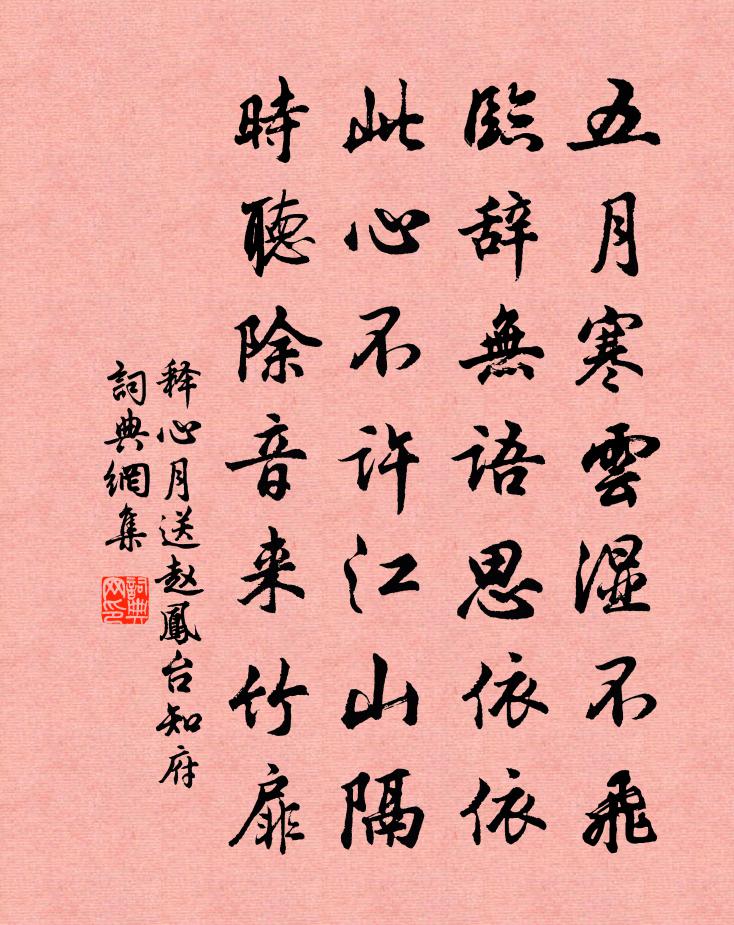 五月寒雲濕不飛
臨辞無語思依依
此心不許江山隔
時聽除音来竹扉
释心月送赵鳳台知府
詞典網集
詞典網印